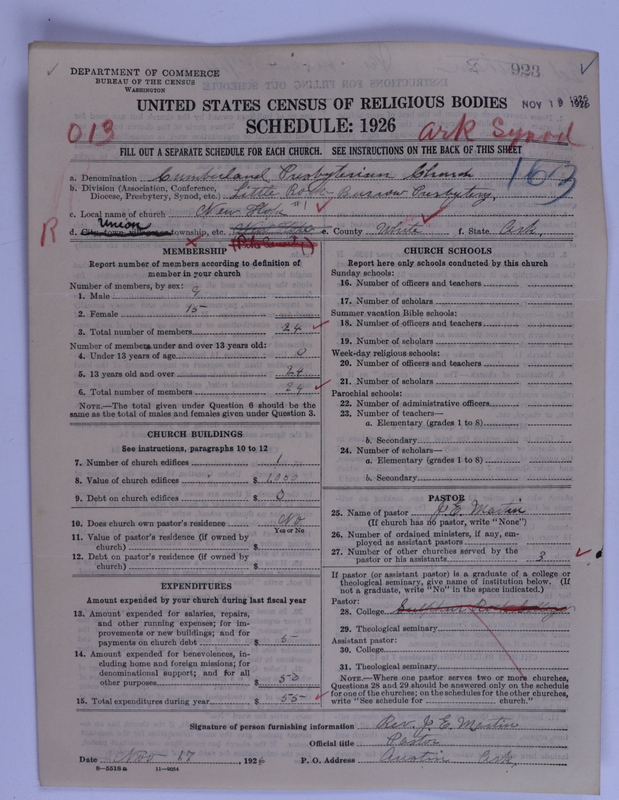 DEPARTMENT OF COMMERCE
BUREAU OF THE CENSUS
WASHINGTON
923
UNITED STATES CENSUS OF RELIGIOUS BODIES
NOV 19 1926
SCHEDULE: 1926
013
Ark Synod
FILL OUT A SEPARATE SCHEDULE FOR EACH CHURCH. SEE INSTRUCTIONS ON THE BACK OF THIS SHEET
163
a. Denomination Cumberland Presbyterian Church
b. Division (Association, Conference, Diocese, Presbytery, Synod, etc.) Little Rock Burrow Presbytery,
c. Local name of church New Hope #1
R
d. Union township, etc. e. County White f. State Ark,
MEMBERSHIP
Report number of members according to definition of member in your church
Number of members, by sex:
1. Male 9
2. Female 15
3. Total number of members 24
Number of members under and over 13 years old:
4. Under 13 years of age 0
5. 13 years old and over 24
6. Total number of members 24
NOTE.—The total given under Question 6 should be the same as the total of males and females given under Question 3.
CHURCH BUILDINGS
See instructions, paragraphs 10 to 12
7. Number of church edifices 1
8. Value of church edifices $
9. Debt on church edifices $ 0
10. Does church own pastor's residence No
Yes or No
11. Value of pastor's residence (if owned by church) $
12. Debt on pastor's residence (if owned by church) $
EXPENDITURES
Amount expended by your church during last fiscal year
13. Amount expended for salaries, repairs, and other running expenses; for improvements or new buildings; and for payments on church debt $ 5
14. Amount expended for benevolences, including home and foreign missions; for denominational support; and for all other purposes $ 50
15. Total expenditures during year $ 55
CHURCH SCHOOLS
Report here only schools conducted by this church
Sunday schools:
16. Number of officers and teachers
17. Number of scholars
Summer vacation Bible schools:
18. Number of officers and teachers
19. Number of scholars
Week-day religious schools:
20. Number of officers and teachers
21. Number of scholars
Parochial schools:
22. Number of administrative officers
23. Number of teachers—
a. Elementary (grades 1 to 8)
b. Secondary
24. Number of scholars—
a. Elementary (grades 1 to 8)
b. Secondary
PASTOR
25. Name of pastor J. E. Martin
(If church has no pastor, write "None")
26. Number of ordained ministers, if any, employed as assistant pastors
27. Number of other churches served by the pastor or his assistants 3
If pastor (or assistant pastor) is a graduate of a college or theological seminary, give name of institution below. (If not a graduate, write "No" in the space indicated.)
Pastor:
28. College
29. Theological seminary
Assistant pastor:
30. College
31. Theological seminary
NOTE.—Where one pastor serves two or more churches, Questions 28 and 29 should be answered only on the schedule for one of the churches; on the schedules for the other churches, write "See schedule for church."
Signature of person furnishing information Rev. J. E. Martin
Official title Pastor
Date Nov 17, 1926 P. O. Address Austin Ark
8—5518a 11—9084